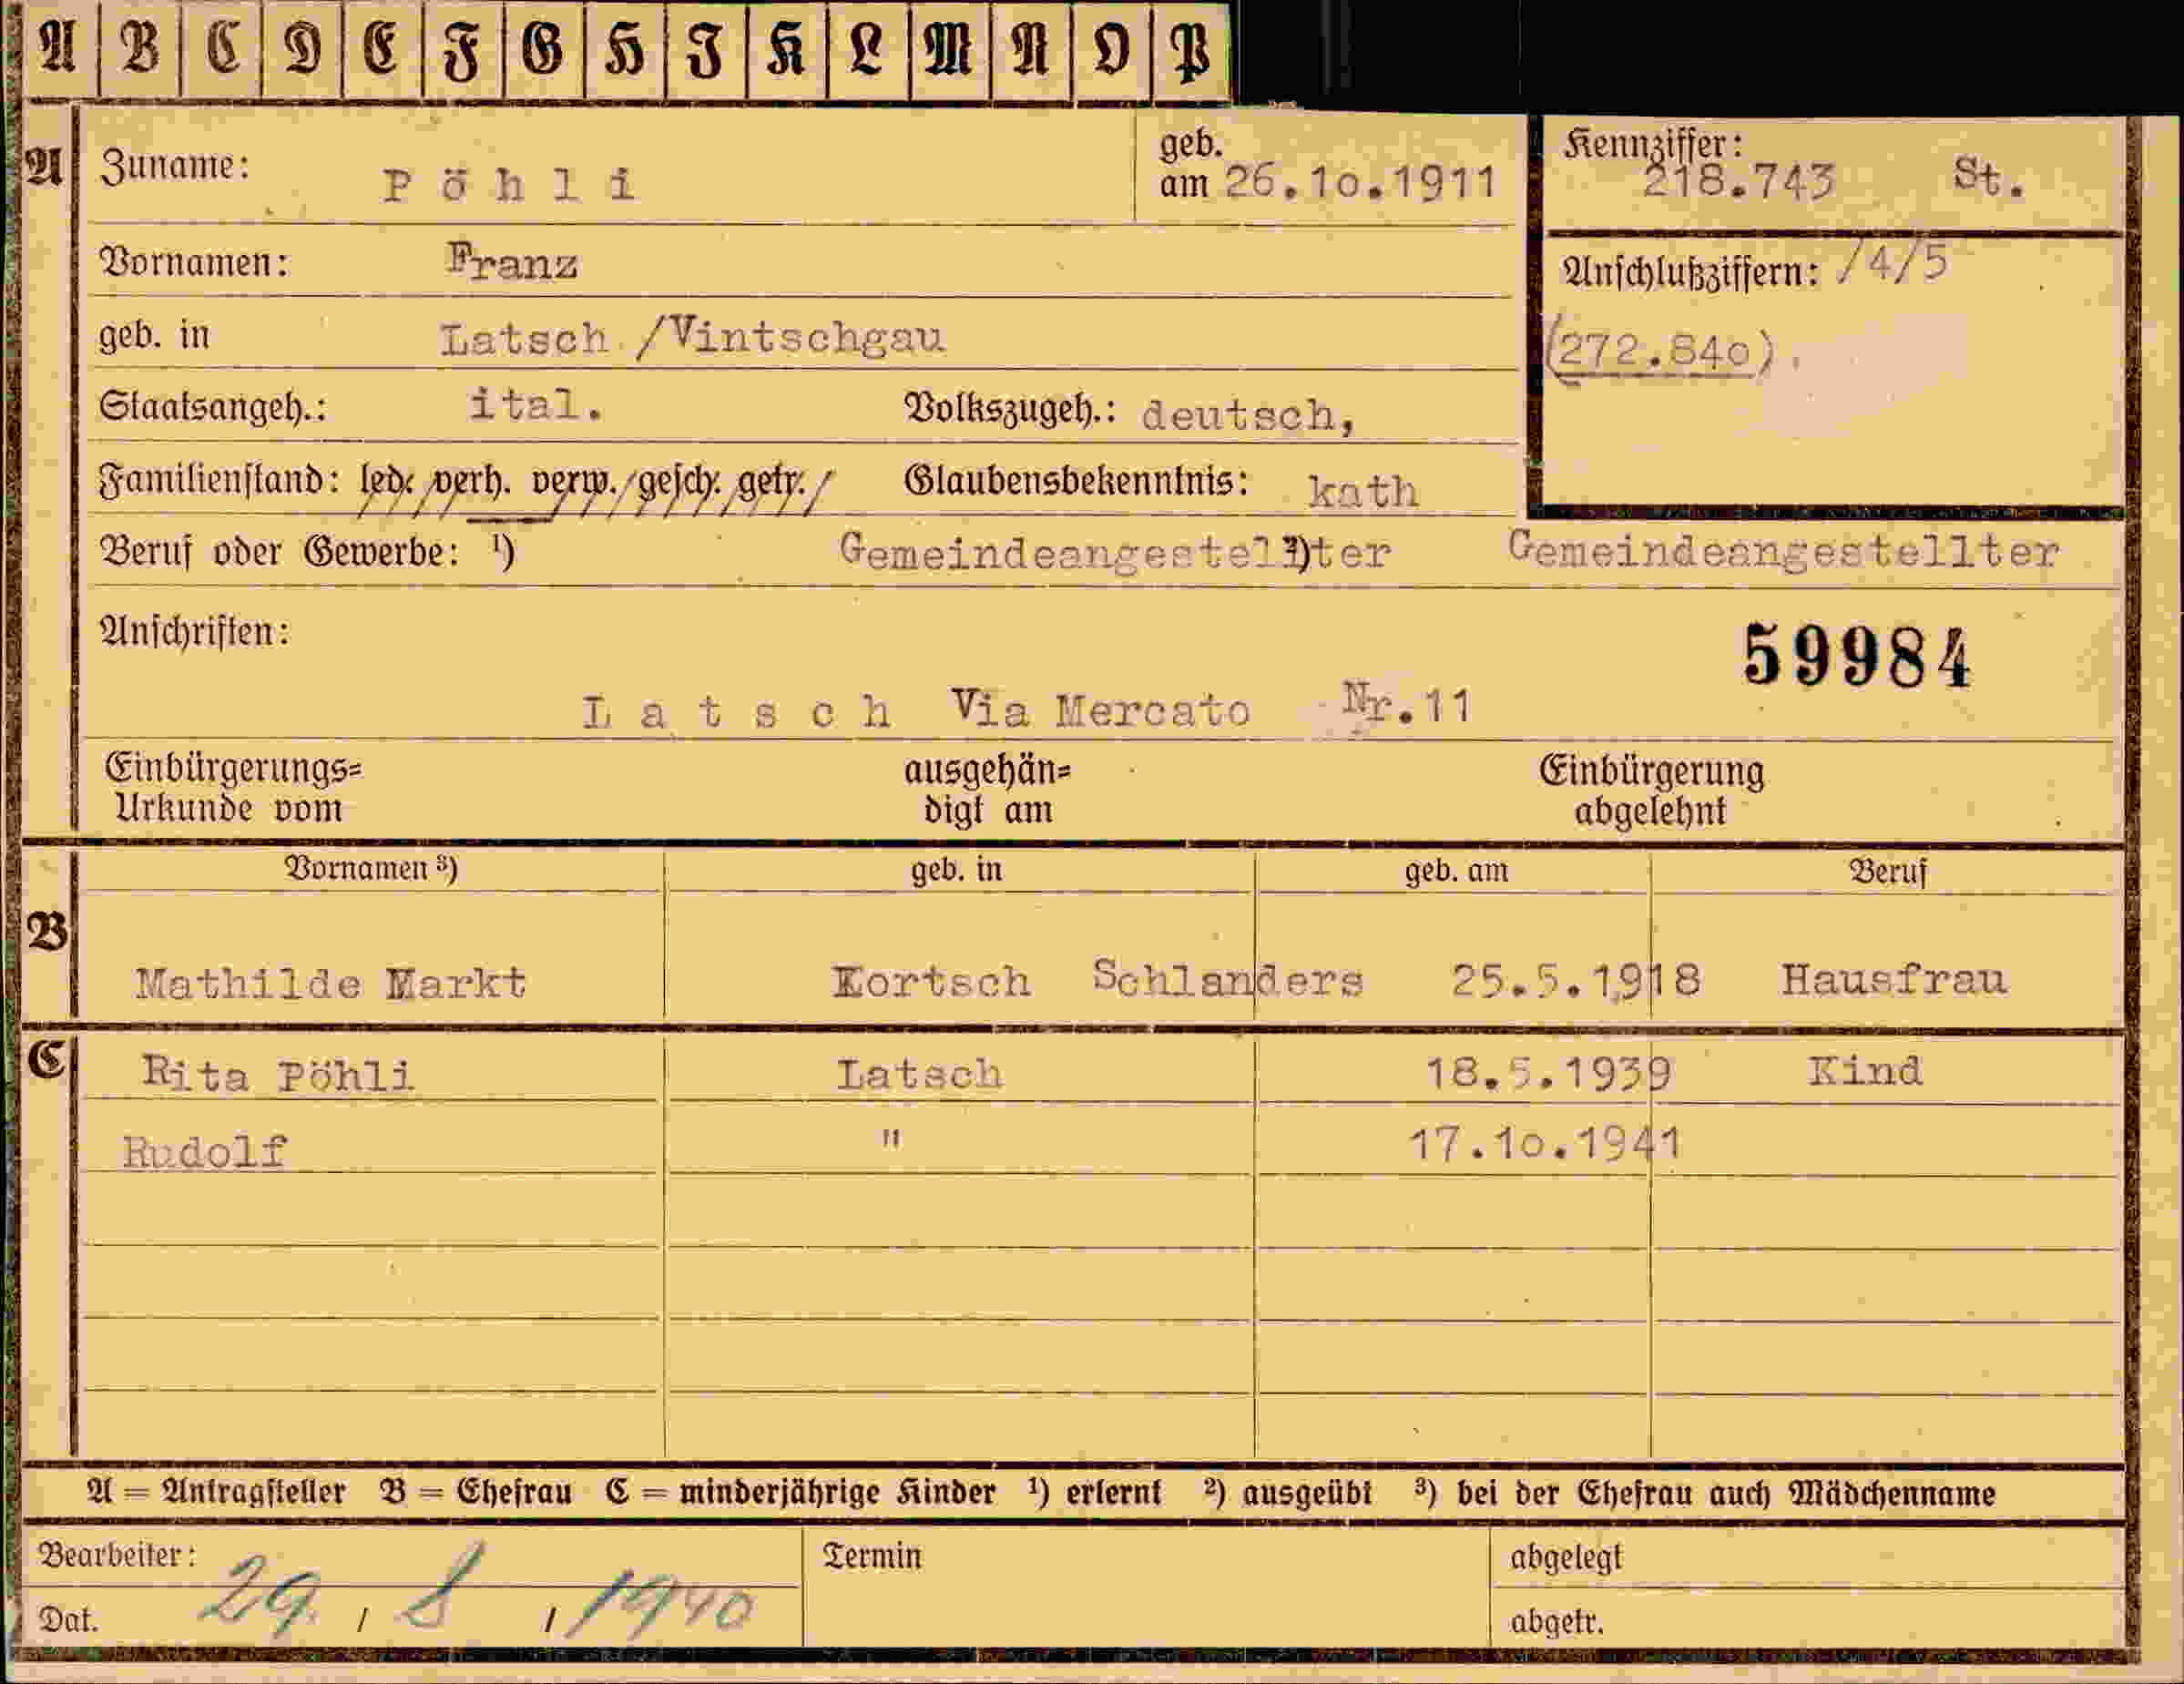 A B C D E F G H I K L M N O P
A Zuname: Pöhli geb. am 26.10.1911 Kennziffer: 218.743 St.
Vornamen: Franz Anschlußziffern: /4/5
geb. in Latsch /Vintschgau (272.840).
Staatsangeh.: ital. Volkszugeh.: deutsch,
Familienstand: led. verh. verw. gesch. getr. Glaubensbekenntnis: kath
Beruf oder Gewerbe: ¹) Gemeindeangestellter ²) Gemeindeangestellter
Anschriften: 59984
Latsch Via Mercato Nr.11
Einbürgerungs= ausgehän= Einbürgerung
Urkunde vom digt am abgelehnt
Vornamen ³) geb. in geb. am Beruf
B
Mathilde Markt Kortsch Schlanders 25.5.1918 Hausfrau
C Rita Pöhli Latsch 18.5.1939 Kind
Rudolf " 17.10.1941
A = Antragsteller B = Ehefrau C = minderjährige Kinder ¹) erlernt ²) ausgeübt ³) bei der Ehefrau auch Mädchenname
Bearbeiter: Termin abgelegt
Dat. 29. / 8 / 1940 abgetr.